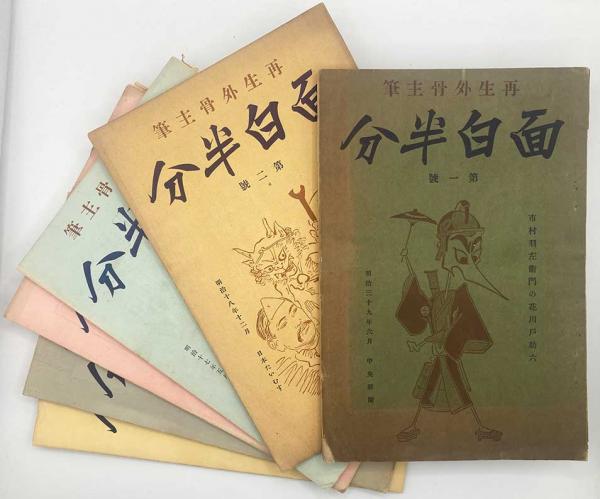 筆主骨外生再
分半白面
第一號
市村羽左衛門の花川戸助六
明治三十九年六月　中央新聞
筆主骨外生再
分半白面
第二號
明治十八年十二月　日本たいむす
筆主骨
分半
明治十七年五
分
分